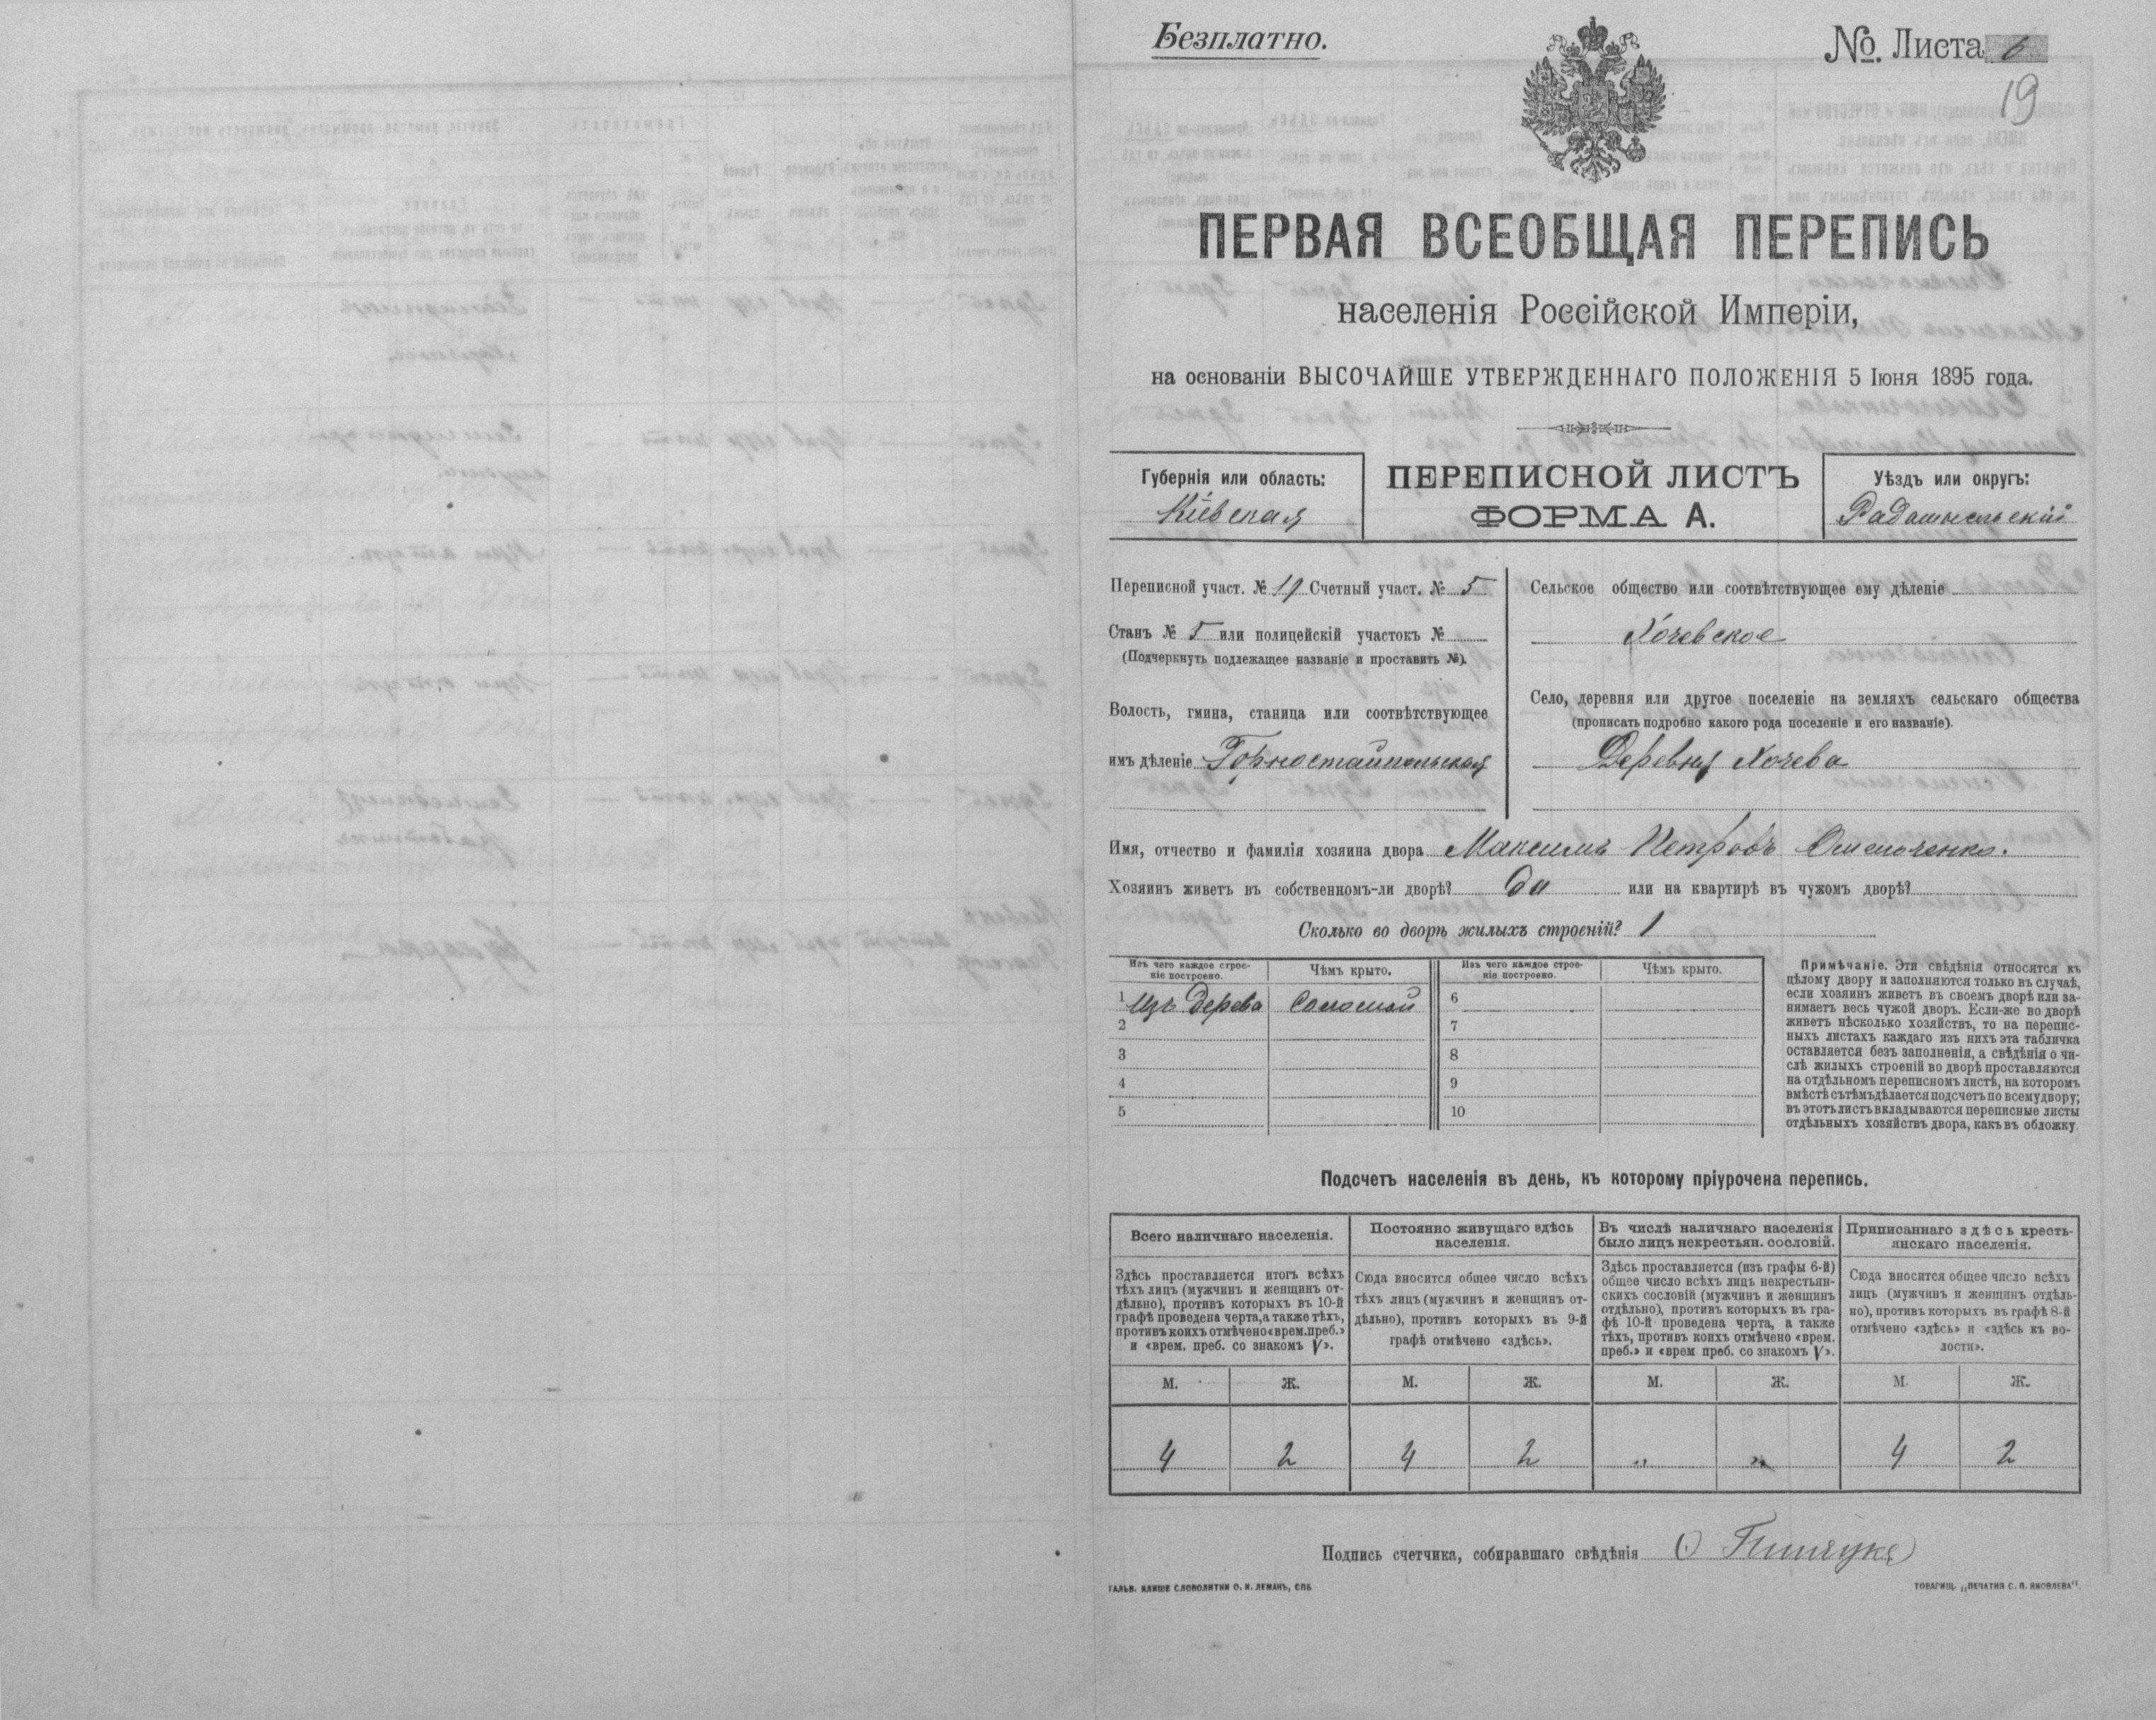 Безплатно.
№. Листа 6
19
ПЕРВАЯ ВСЕОБЩАЯ ПЕРЕПИСЬ
населенія Россійской Имперіи,
на основаніи ВЫСОЧАЙШЕ УТВЕРЖДЕННАГО ПОЛОЖЕНІЯ 5 Іюня 1895 года.
Губернія или область:
Кіевская
ПЕРЕПИСНОЙ ЛИСТЪ
ФОРМА А.
Уѣздъ или округъ:
Радомысльскій
Переписной участ. № 19 Счетный участ. № 5
Станъ № 5 или полицейскій участокъ №
(Подчеркнуть подлежащее названіе и проставить №).
Волость, гмина, станица или соотвѣтствующее
имъ дѣленіе Горностайпольская
Сельское общество или соотвѣтствующее ему дѣленіе
Хочевское
Село, деревня или другое поселеніе на земляхъ сельскаго общества
(прописать подробно какого рода поселеніе и его названіе).
Деревня Хочева
Имя, отчество и фамилія хозяина двора Максимъ Петровъ
Хозяинъ живетъ въ собственномъ-ли дворѣ? да или на квартирѣ въ чужомъ дворѣ?
Сколько во дворѣ жилыхъ строеній? 1
Изъ чего каждое строе-
ніе построено.
Чѣмъ крыто.
Изъ чего каждое строе-
ніе построено.
Чѣмъ крыто.
1 Изъ дерева Соломой 6
2 7
3 8
4 9
5 10
Примѣчаніе. Эти свѣдѣнія относятся къ
цѣлому двору и заполняются только въ случаѣ,
если хозяинъ живетъ въ своемъ дворѣ или за-
нимаетъ весь чужой дворъ. Если-же во дворѣ
живетъ нѣсколько хозяйствъ, то на перепис-
ныхъ листахъ каждаго изъ нихъ эта табличка
оставляется безъ заполненія, а свѣдѣнія о чи-
слѣ жилыхъ строеній во дворѣ проставляются
на отдѣльномъ переписномъ листѣ, на которомъ
вмѣстѣ сътѣмъ дѣлается подсчетъ по всему двору;
въ этотъ листъ вкладываются переписные листы
отдѣльныхъ хозяйствъ двора, какъ въ обложку
Подсчетъ населенія въ день, къ которому пріурочена перепись.
Всего наличнаго населенія.
Здѣсь проставляется итогъ всѣхъ
тѣхъ лицъ (мужчинъ и женщинъ от-
дѣльно), противъ которыхъ въ 10-й
графѣ проведена черта, а также тѣхъ,
противъ коихъ отмѣчено «врем. преб.»
и «врем. преб. со знакомъ V».
Постоянно живущаго здѣсь
населенія.
Сюда вносится общее число всѣхъ
тѣхъ лицъ (мужчинъ и женщинъ от-
дѣльно), противъ которыхъ въ 9-й
графѣ отмѣчено «здѣсь».
Въ числѣ наличнаго населенія
было лицъ некрестьян. сословій.
Здѣсь проставляется (изъ графы 6-й)
общее число всѣхъ лицъ некрестьян-
скихъ сословій (мужчинъ и женщинъ
отдѣльно), противъ которыхъ въ гра-
фѣ 10-й проведена черта, а также
тѣхъ, противъ коихъ отмѣчено «врем.
преб.» и «врем преб. со знакомъ V».
Приписаннаго здѣсь кресть-
янскаго населенія.
Сюда вносится общее число всѣхъ
лицъ (мужчинъ и женщинъ отдѣль-
но), противъ которыхъ въ графѣ 8-й
отмѣчено «здѣсь» и «здѣсь къ во-
лости».
М. Ж. М. Ж. М. Ж. М. Ж.
4 2 4 2 „ „ 4 2
Подпись счетчика, собиравшаго свѣдѣнія
ГАЛЬВ. КЛИШЕ СЛОВОЛИТНИ О. И. ЛЕМАНЪ, СПБ
ТОВАРИЩ. „ПЕЧАТНЯ С. П. ЯКОВЛЕВА“.